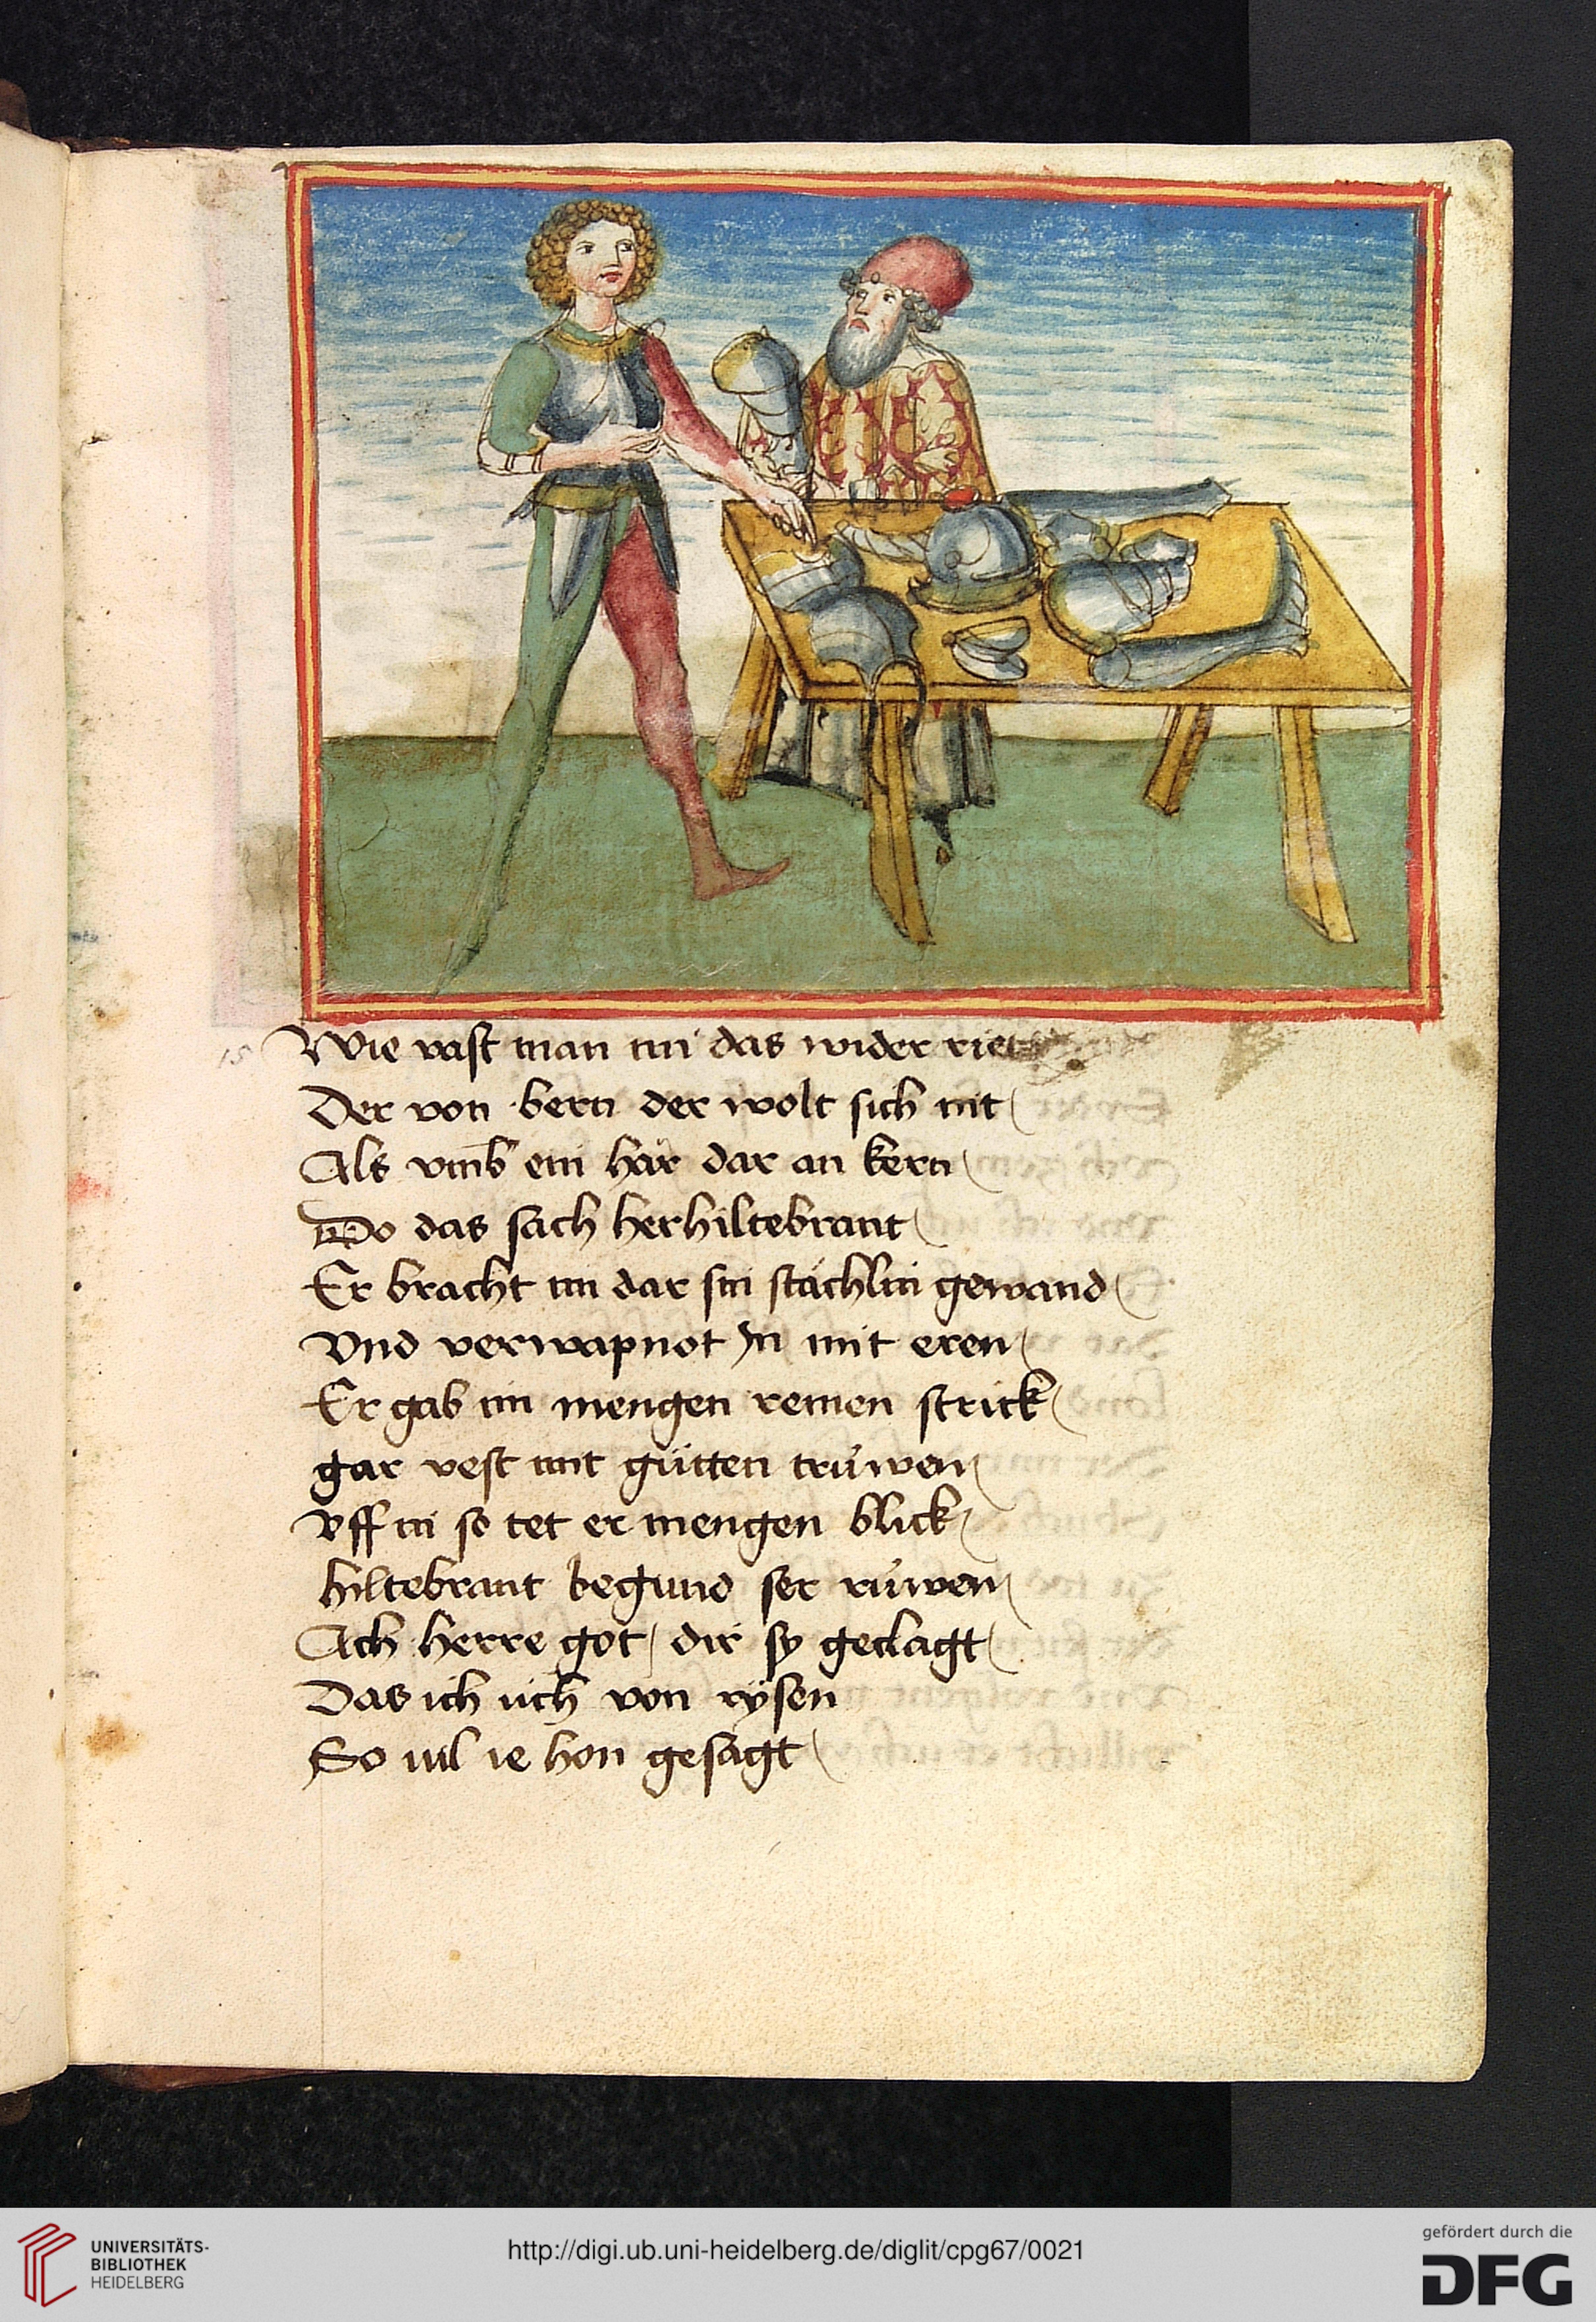 15 Wie vast man im das wider riet
Der von bern der wolt sich nit
Als vmb ein här dar an kern
Do das sach her hiltebrant
Er bracht im dar sin stächlin gewand
Vnd verwapnot In mit eren
Er gab im mengen remen strick
gar vest mit gůtten trüwen
Vff in so tet er mengen blick
hiltebrant begund ser rüwen
Ach herre got dir sy geclagt
Das ich üch von rysen
So uil ie hon gesagt
UNIVERSITÄTS-
BIBLIOTHEK
HEIDELBERG
http://digi.ub.uni-heidelberg.de/diglit/cpg67/0021
gefördert durch die
DFG